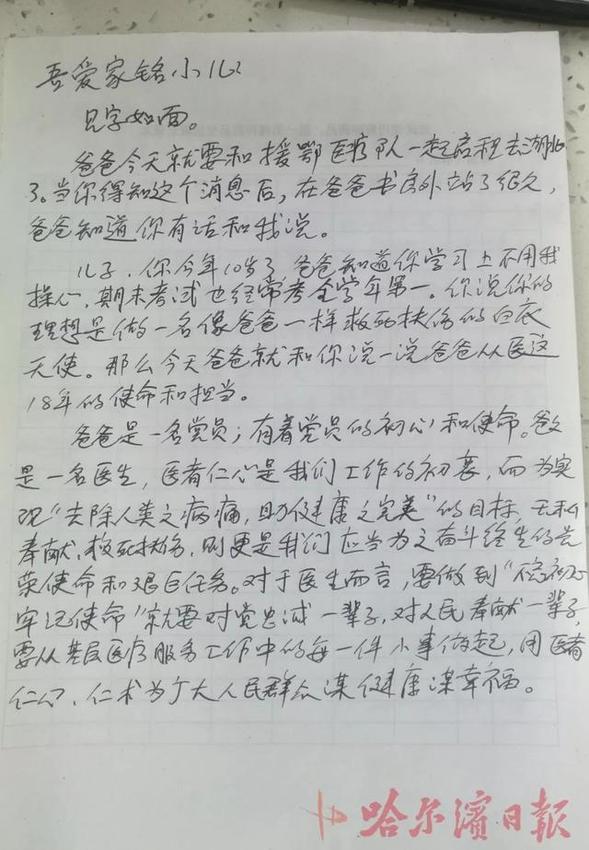 吾爱家铭小儿：
见字如面。
爸爸今天就要和援鄂医疗队一起启程去湖北
了。当你得知这个消息后，在爸爸书房外站了很久，
爸爸知道你有话和我说。
儿子，你今年10岁了，爸爸知道你学习上不用我
操心，期末考试也经常考全学年第一。你说你的
理想是做一名像爸爸一样救死扶伤的白衣
天使。那么今天爸爸就和你说一说爸爸从医这
18年的使命和担当。
爸爸是一名党员，有着党员的初心和使命。爸爸
是一名医生，医者仁心是我们工作的初衷，而为实
现“去除人类之病痛，助健康之完美”的目标，无私
奉献、救死扶伤，则更是我们应当为之奋斗终生的光
荣使命和艰巨任务。对于医生而言，要做到“不忘初心
牢记使命”就要对党忠诚一辈子，对人民奉献一辈子，
要从基层医疗服务工作中的每一件小事做起，用医者
仁心、仁术为广大人民群众谋健康谋幸福。
哈尔滨日报